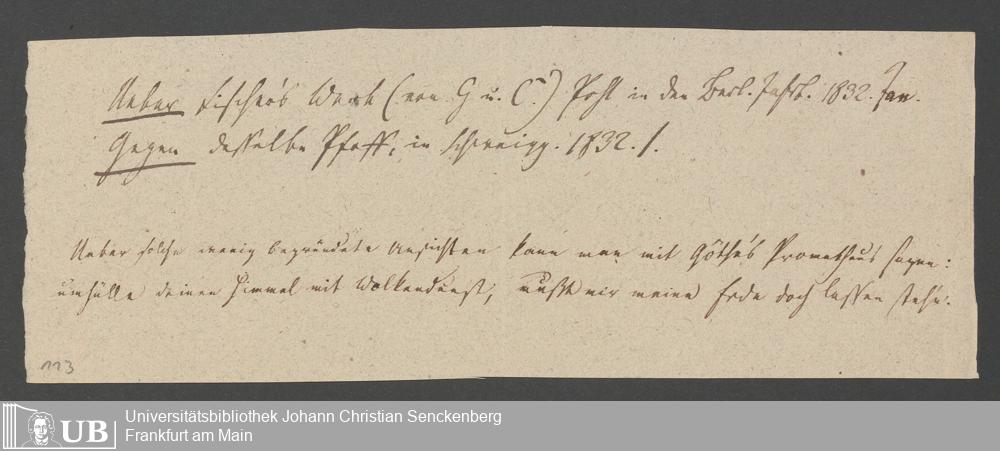 Ueber Fischer's Werk (von G u. C.) Pohl in den Berl. Jahrb. 1832. Jan.
Gegen dasselbe Pfaff, in Schweigg. 1832. 1.
Ueber solche wenig begründete Ansichten kann man mit Göthe's Prometheus sagen:
umhülle deinen Himmel mit Wolkendunst, mußt mir meine Erde doch lassen stehn.
113
UB Universitätsbibliothek Johann Christian Senckenberg
Frankfurt am Main